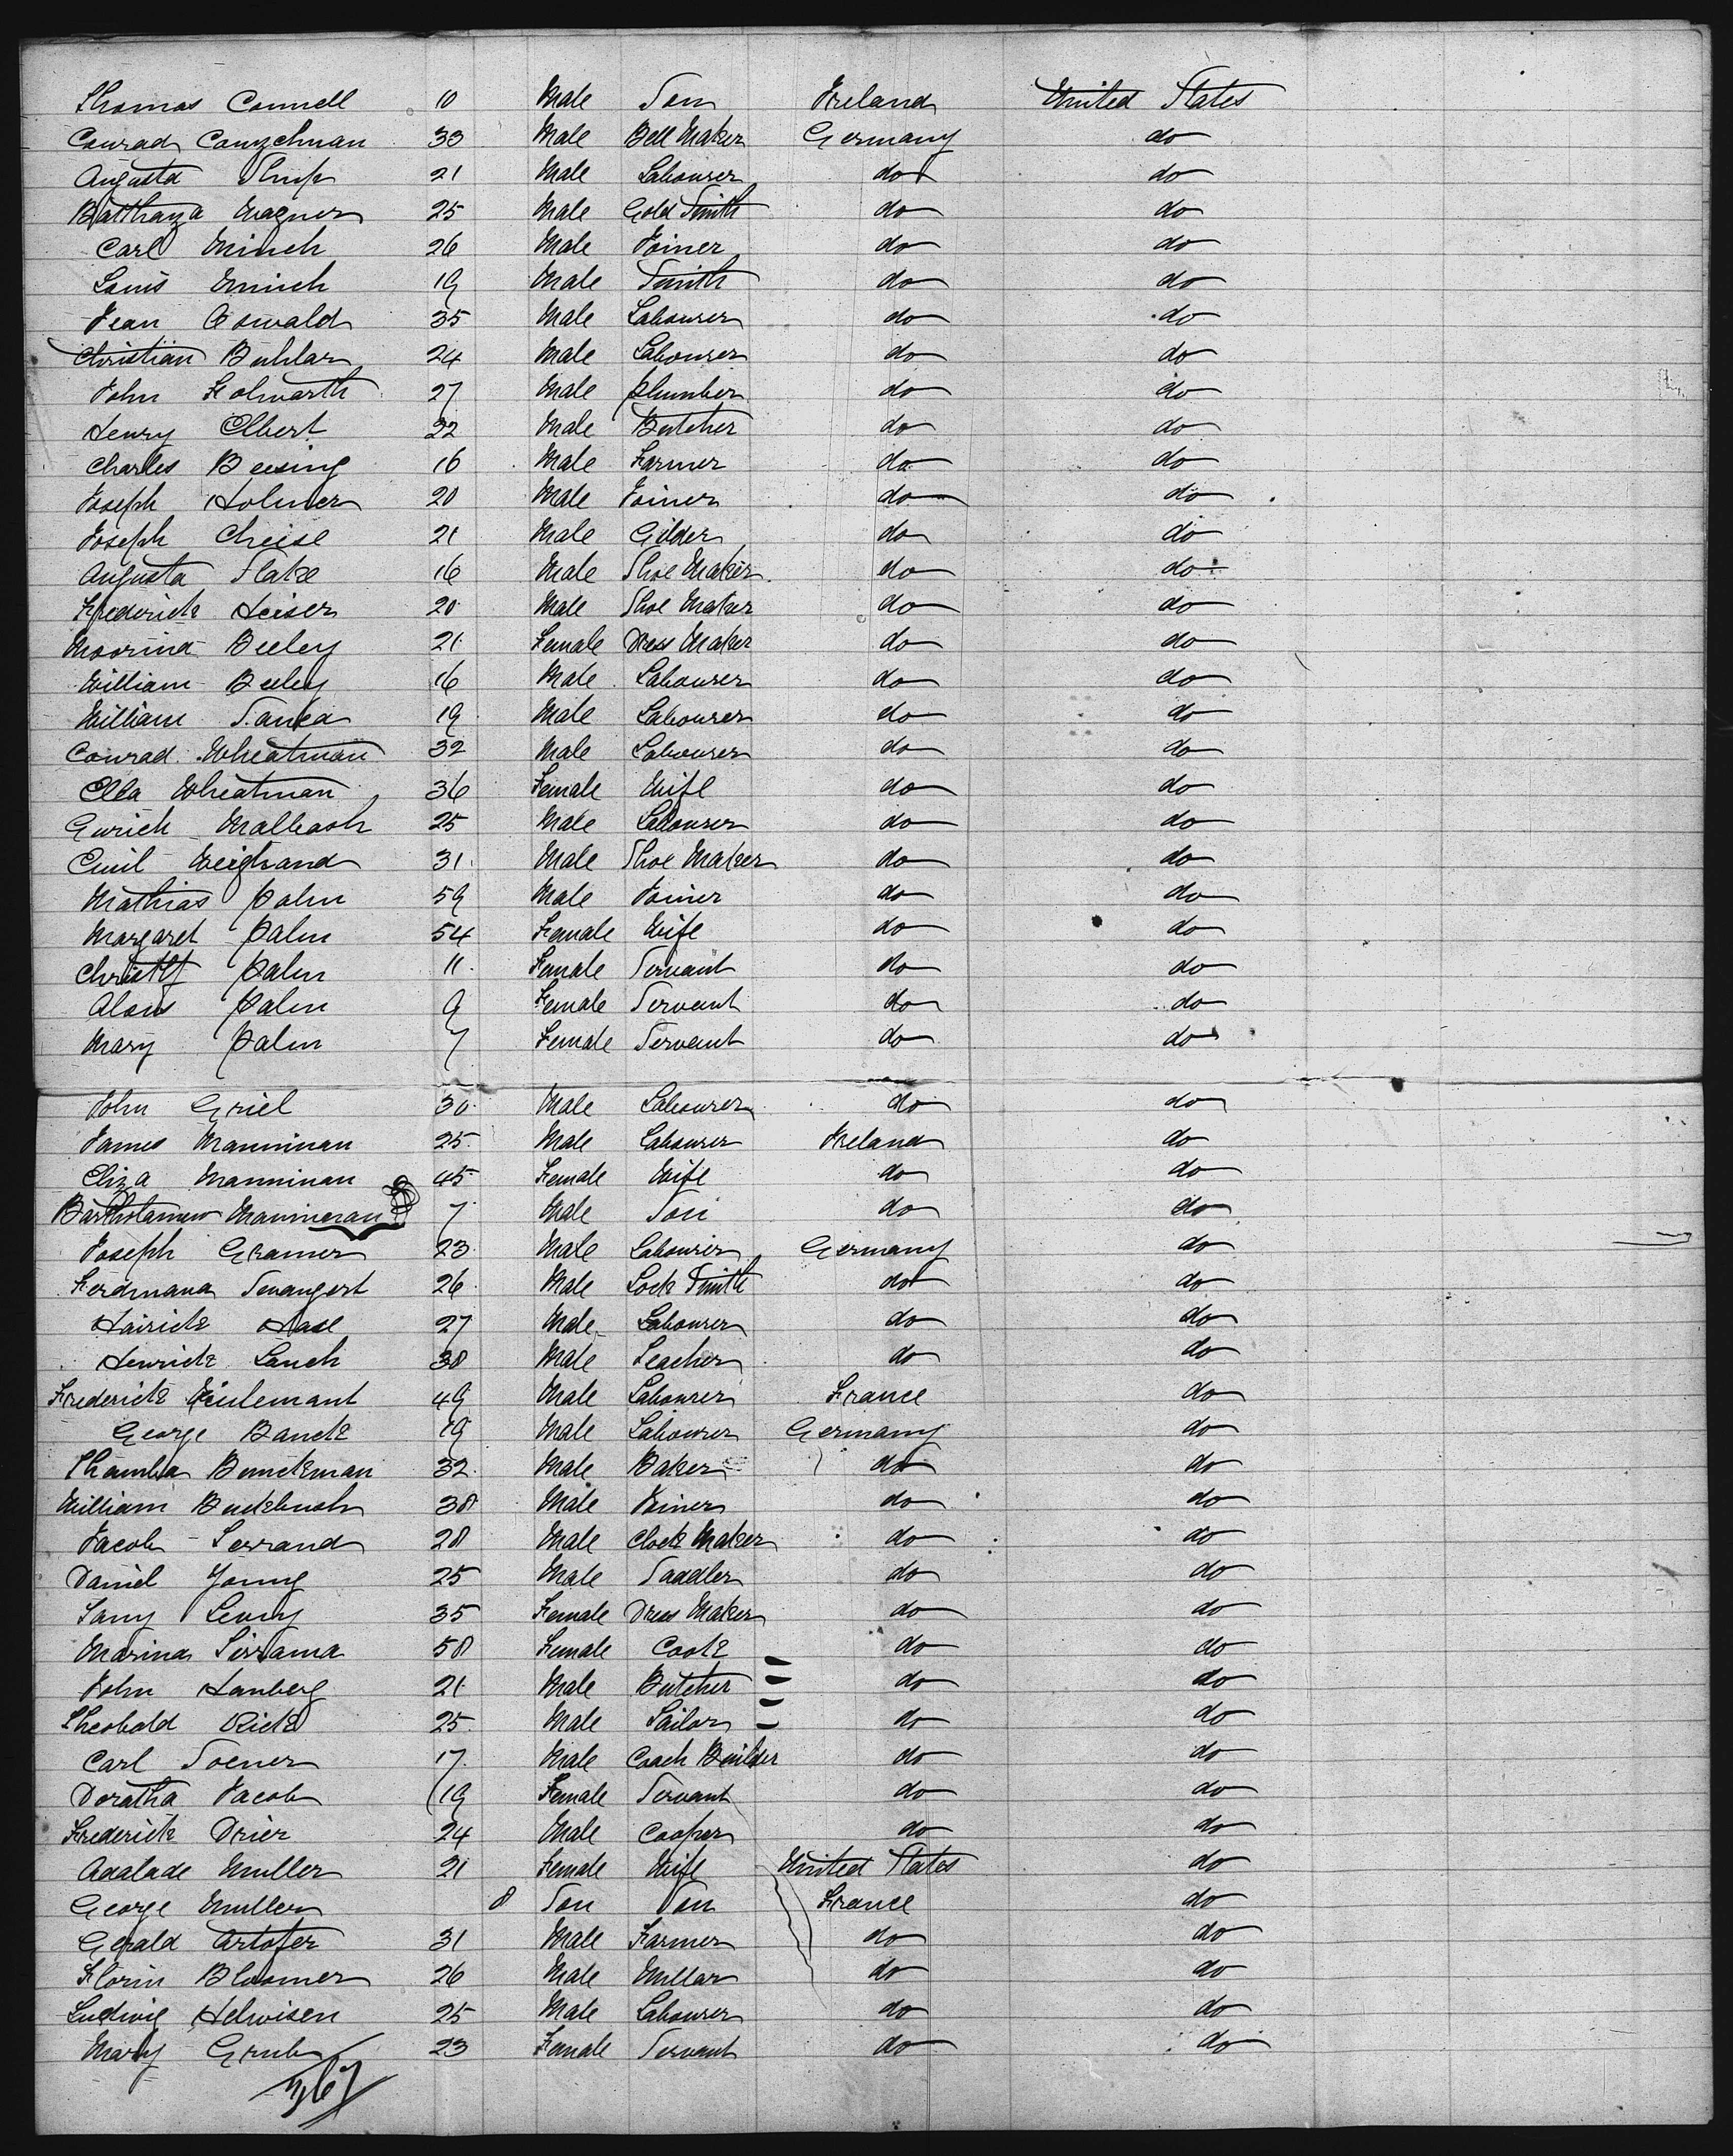 Thomas Connell 10 Male Son Ireland United States
Conrad Canzelman 30 Male Bell Maker Germany do
Augusta 21 Male Labourer do do
Wagner 25 Male Gold Smith do do
Carl Minch 26 Male Joiner do do
Louis Minch 19 Male Smith do do
Jean Oswald 35 Male Labourer do do
Christian Buhlar 24 Male Labourer do do
John Holwarth 27 Male Plumber do do
Henry Elbert 22 Male Butcher do do
Charles Beesing 16 Male Farmer do do
Joseph Holmer 20 Male Joiner do do
Joseph Cheise 21 Male Gilder do do
Augusta Flake 16 Male Shoe Maker do do
Frederick Heiser 20 Male Shoe Maker do do
Moorina Beeley 21 Female Dress Maker do do
William Beeley 16 Male Labourer do do
William Sanka 19 Male Labourer do do
Conrad Wheatman 32 Male Labourer do do
Ella Wheatman 36 Female Wife do do
Malbash 25 Male Labourer do do
Emil Weighand 31 Male Shoe Maker do do
Mathias Palm 59 Male Joiner do do
Margaret Palm 54 Female Wife do do
Palm 11 Female Servant do do
Alois Palm 9 Female Servant do do
Mary Palm 7 Female Servant do do
John Griel 30 Male Labourer do do
James Manninan 25 Male Labourer Ireland do
Eliza Manninan 45 Female Wife do do
Bartholamew Manineran 7 Male Son do do
Joseph Gramer 23 Male Labourer Germany do
Ferdinana Swangert 26 Male Lock Smith do do
Hairick Hase 27 Male Labourer do do
Henrick Lauch 38 Male Teacher do do
Frederick 49 Male Labourer France do
George Banck 19 Male Labourer Germany do
Bunckman 32 Male Baker do do
William Buckbush 38 Male Joiner do do
Jacob Serrand 28 Male Clock Maker do do
Daniel Young 25 Male Saddler do do
Levny 35 Female Dress Maker do do
Marina Sirrama 58 Female Cook do do
John Hanberg 21 Male Butcher do do
Theobald Rick 25 Male Tailor do do
Carl Soener 17 Male Coach Builder do do
Doratha Jacob 19 Female Servant do do
Frederick Drier 24 Male Cooper do do
Adalade Muller 21 Female Wife United States do
George Muller 8 Son Son France do
Gerald Artofer 31 Male Farmer do do
Florin Bloomer 26 Male Millar do do
Ludwig Helwisen 25 Male Labourer do do
Mary Grub 23 Female Servant do do
367